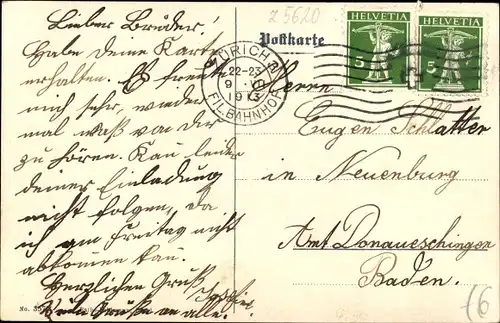 Lieber Bruder!
Habe deine Karte
erhalten. Es freute
mich sehr, wieder
mal waß von dir
zu hören. Kan leider
deiner Einladung
nicht folgen, da
ich am Freitag nicht
abkomen kan.
Herzlichen Gruß
Viele Grüße an alle.
Z 5620
Postkarte
HELVETIA
5
HELVETIA
5
ZÜRICH
22-23
9 VII
1913
FIL. BAHNHOF
Herrn
Eugen Schlatter
in Neuenburg
Amt Donaueschingen
Baden.
No.
6